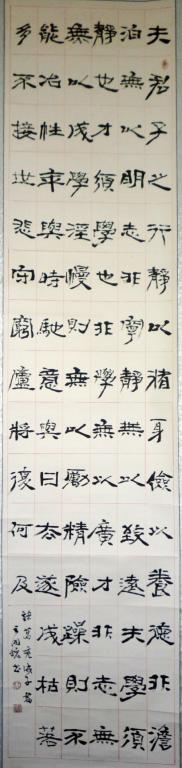 夫君子之行靜以脩身儉以養德非澹
泊無以明志非寧靜無以致遠夫學須
靜也才須學也非學無以廣才非志無
無以成學淫慢則無以勵精險躁則不
能冶性年與時馳意與日去遂成枯落
多不接世悲守窮廬將復何及
諸葛亮誡子書
書